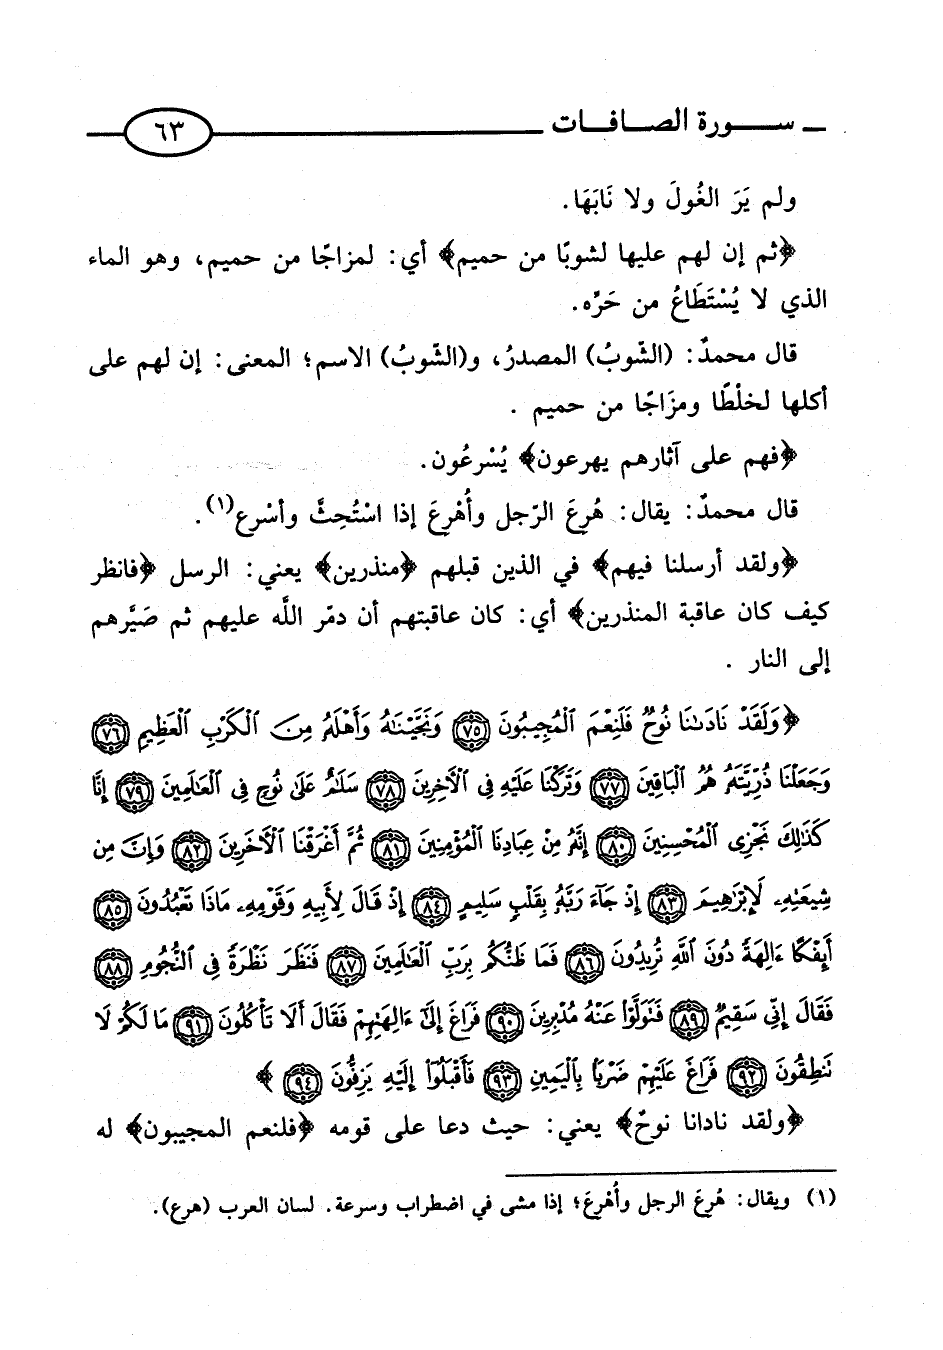 ــ ســـــورة الصـــافـــات ٦٣
ولم يَرَ الغُولَ ولا نَابَهَا.
﴿ثم إن لهم عليها لشوبًا من حميم﴾ أي: لمزاجًا من حميم، وهو الماء
الذي لا يُسْتَطَاعُ من حَرِّه.
قال محمدٌ: (الشّوبُ) المصدرُ، و(الشّوبُ) الاسم؛ المعنى: إن لهم على
أكلها لخلْطًا ومزَاجًا من حميم .
﴿فهم على آثارهم يهرعون﴾ يُسْرعُون.
قال محمدٌ: يقال: هُرِعَ الرّجل وأُهْرِعَ إذا اسْتُحِثَّ وأسْرع(١).
﴿ولقد أرسلنا فيهم﴾ في الذين قبلهم ﴿منذرين﴾ يعني: الرسل ﴿فانظر
كيف كان عاقبة المنذرين﴾ أي: كان عاقبتهم أن دمّر اللَّه عليهم ثم صَيَّرهم
إلى النار .
﴿وَلَقَدْ نَادَىٰنَا نُوحٌ فَلَنِعْمَ ٱلْمُجِيبُونَ ٧٥ وَنَجَّيْنَـٰهُ وَأَهْلَهُۥ مِنَ ٱلْكَرْبِ ٱلْعَظِيمِ ٧٦
وَجَعَلْنَا ذُرِّيَّتَهُۥ هُمُ ٱلْبَاقِينَ ٧٧ وَتَرَكْنَا عَلَيْهِ فِى ٱلْآخِرِينَ ٧٨ سَلَـٰمٌ عَلَىٰ نُوحٍ فِى ٱلْعَـٰلَمِينَ ٧٩ إِنَّا
كَذَٰلِكَ نَجْزِى ٱلْمُحْسِنِينَ ٨٠ إِنَّهُۥ مِنْ عِبَادِنَا ٱلْمُؤْمِنِينَ ٨١ ثُمَّ أَغْرَقْنَا ٱلْآخَرِينَ ٨٢ وَإِنَّ مِن
شِيعَتِهِۦ لَإِبْرَٰهِيمَ ٨٣ إِذْ جَآءَ رَبَّهُۥ بِقَلْبٍ سَلِيمٍ ٨٤ إِذْ قَالَ لِأَبِيهِ وَقَوْمِهِۦ مَاذَا تَعْبُدُونَ ٨٥
أَئِفْكًا ءَالِهَةً دُونَ ٱللَّهِ تُرِيدُونَ ٨٦ فَمَا ظَنُّكُم بِرَبِّ ٱلْعَـٰلَمِينَ ٨٧ فَنَظَرَ نَظْرَةً فِى ٱلنُّجُومِ ٨٨
فَقَالَ إِنِّى سَقِيمٌ ٨٩ فَتَوَلَّوْا۟ عَنْهُ مُدْبِرِينَ ٩٠ فَرَاغَ إِلَىٰٓ ءَالِهَتِهِمْ فَقَالَ أَلَا تَأْكُلُونَ ٩١ مَا لَكُمْ لَا
تَنطِقُونَ ٩٢ فَرَاغَ عَلَيْهِمْ ضَرْبًۢا بِٱلْيَمِينِ ٩٣ فَأَقْبَلُوٓا۟ إِلَيْهِ يَزِفُّونَ ٩٤ ﴾
﴿ولقد نادانا نوحٌ﴾ يعني: حيث دعا على قومه ﴿فلنعم المجيبون﴾ له
(١) ويقال: هُرِعَ الرجل وأُهْرِعَ؛ إذا مشى في اضطراب وسرعة. لسان العرب (هرع).